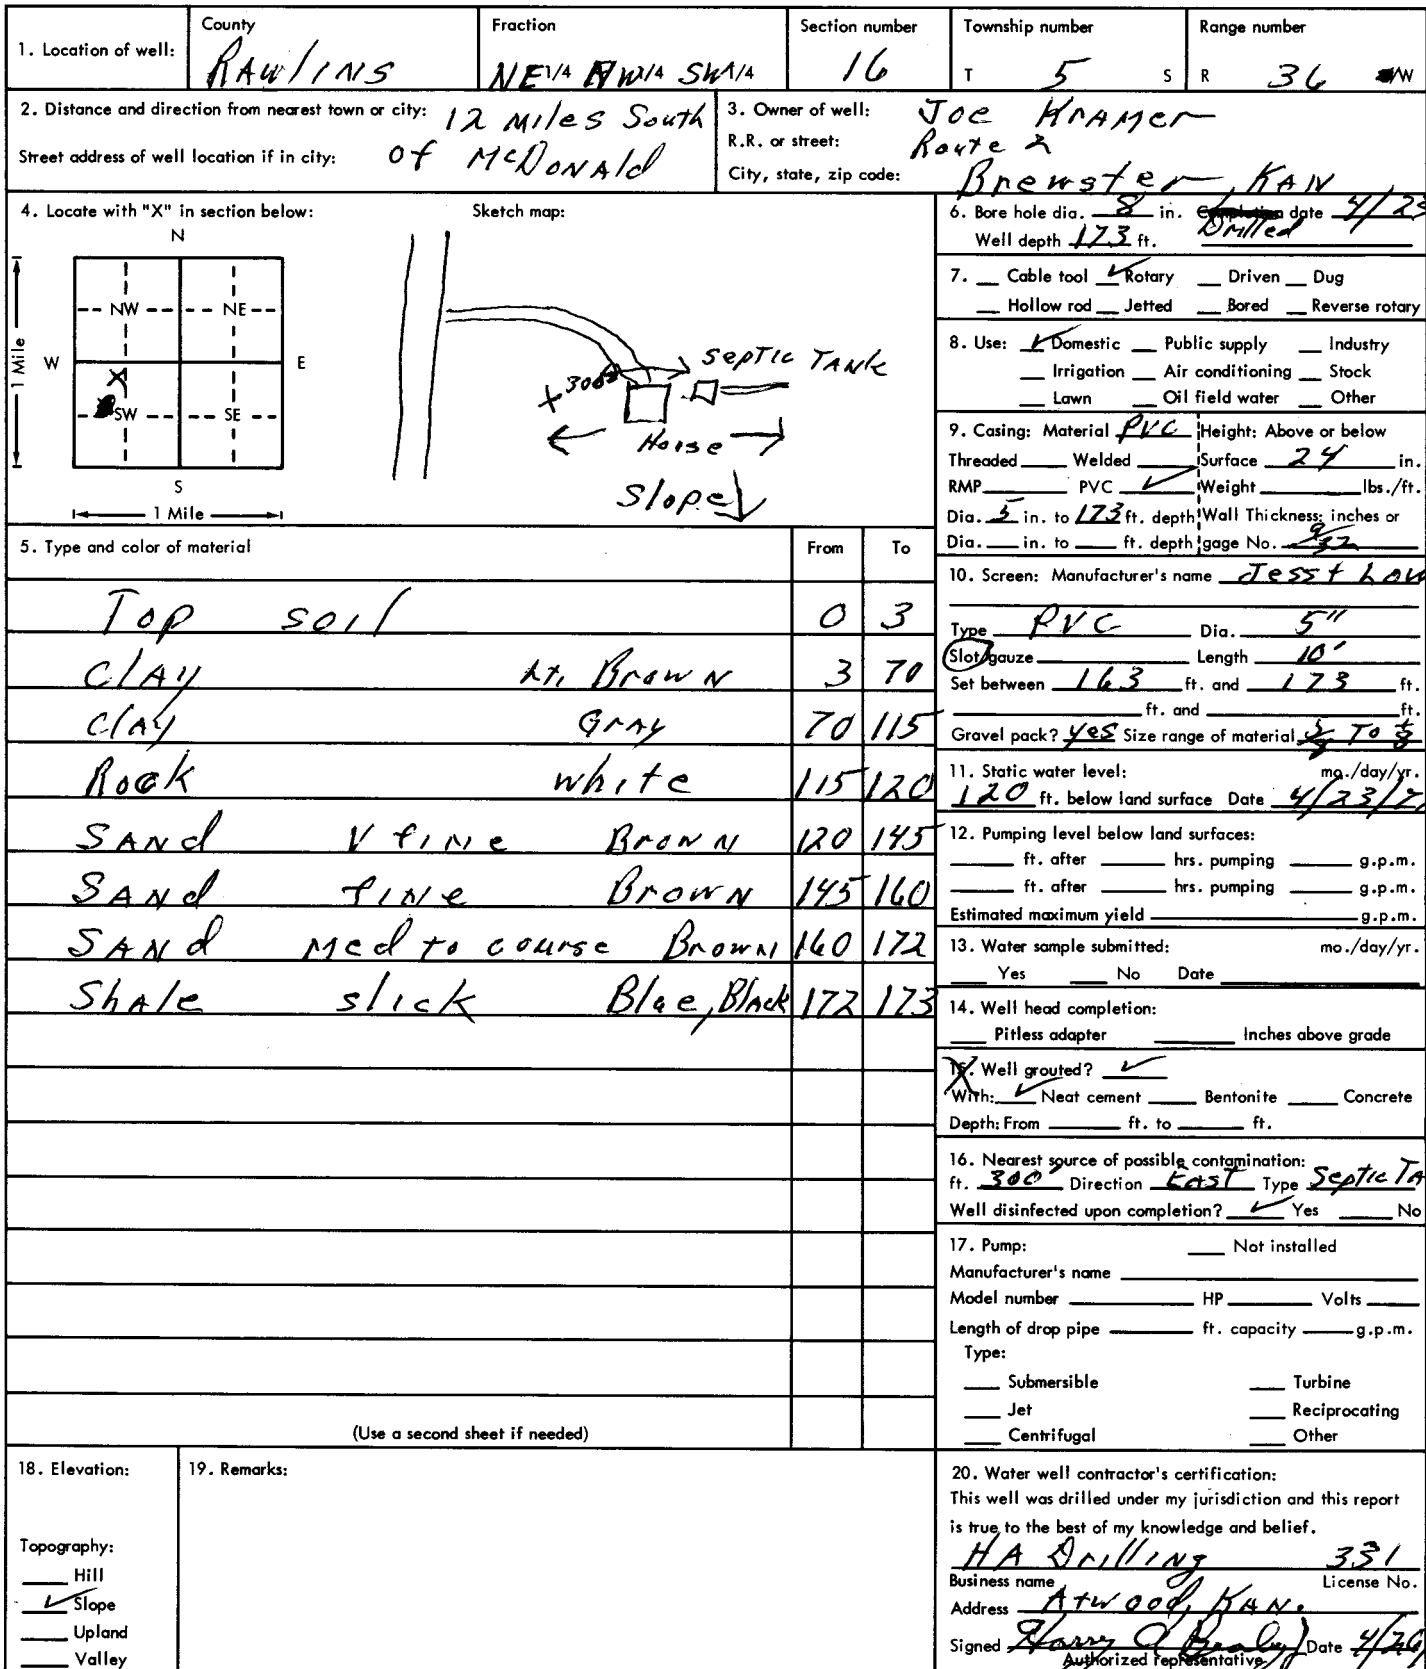 1. Location of well: County Rawlins Fraction NE 1/4 NW 1/4 SW 1/4 Section number 16 Township number T 5 S Range number R 36 W
2. Distance and direction from nearest town or city: 12 miles South
Street address of well location if in city: of McDonald
3. Owner of well: Joe Kramer
R.R. or street: Route 2
City, state, zip code: Brewster, KAN
4. Locate with "X" in section below: Sketch map:
N
NW NE
W E
X
SW SE
S
1 Mile
1 Mile
Septic Tank
300
House
Slope
5. Type and color of material From To
Top soil 0 3
Clay Lt. Brown 3 70
Clay Gray 70 115
Rock white 115 120
Sand V fine Brown 120 145
Sand fine Brown 145 160
Sand Med to course Brown 160 172
Shale slick Blue, Black 172 173
(Use a second sheet if needed)
6. Bore hole dia. 8 in. Completion date 4/23
Drilled
Well depth 173 ft.
7. Cable tool ✓ Rotary Driven Dug
Hollow rod Jetted Bored Reverse rotary
8. Use: ✓ Domestic Public supply Industry
Irrigation Air conditioning Stock
Lawn Oil field water Other
9. Casing: Material PVC Height: Above or below
Threaded Welded Surface 24 in.
RMP PVC ✓ Weight lbs./ft.
Dia. 5 in. to 173 ft. depth Wall Thickness: inches or
Dia. in. to ft. depth gage No. 9/32
10. Screen: Manufacturer's name Jess + Low
Type PVC Dia. 5"
Slot/gauze Length 10'
Set between 163 ft. and 173 ft.
ft. and ft.
Gravel pack? yes Size range of material To
11. Static water level: mo./day/yr.
120 ft. below land surface Date 4/23/7
12. Pumping level below land surfaces:
ft. after hrs. pumping g.p.m.
ft. after hrs. pumping g.p.m.
Estimated maximum yield g.p.m.
13. Water sample submitted: mo./day/yr.
Yes No Date
14. Well head completion:
Pitless adapter Inches above grade
15. Well grouted? ✓
With: ✓ Neat cement Bentonite Concrete
Depth: From ft. to ft.
16. Nearest source of possible contamination:
ft. 300' Direction East Type Septic Ta
Well disinfected upon completion? ✓ Yes No
17. Pump: Not installed
Manufacturer's name
Model number HP Volts
Length of drop pipe ft. capacity g.p.m.
Type:
Submersible Turbine
Jet Reciprocating
Centrifugal Other
18. Elevation:
Topography:
Hill
✓ Slope
Upland
Valley
19. Remarks:
20. Water well contractor's certification:
This well was drilled under my jurisdiction and this report
is true to the best of my knowledge and belief.
HA Drilling 331
Business name License No.
Address Atwood, KAN.
Signed Harry A Date 4/26
Authorized representative